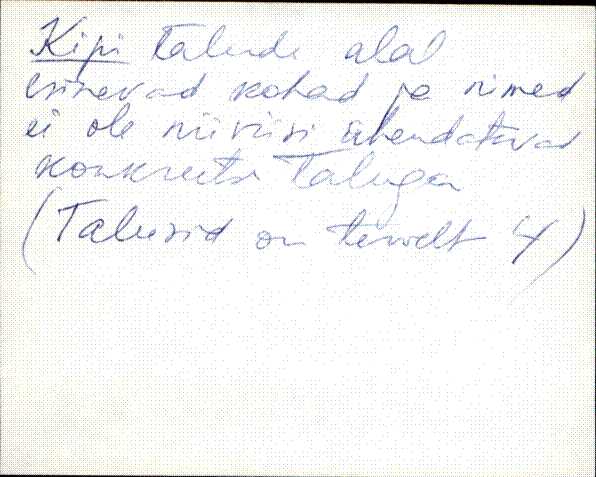 Kipi talude alal
esinevad kohad ja nimed
ei ole niiviisi ühendatavad
konkreetse Taluga
(Talusid on tervelt 4)